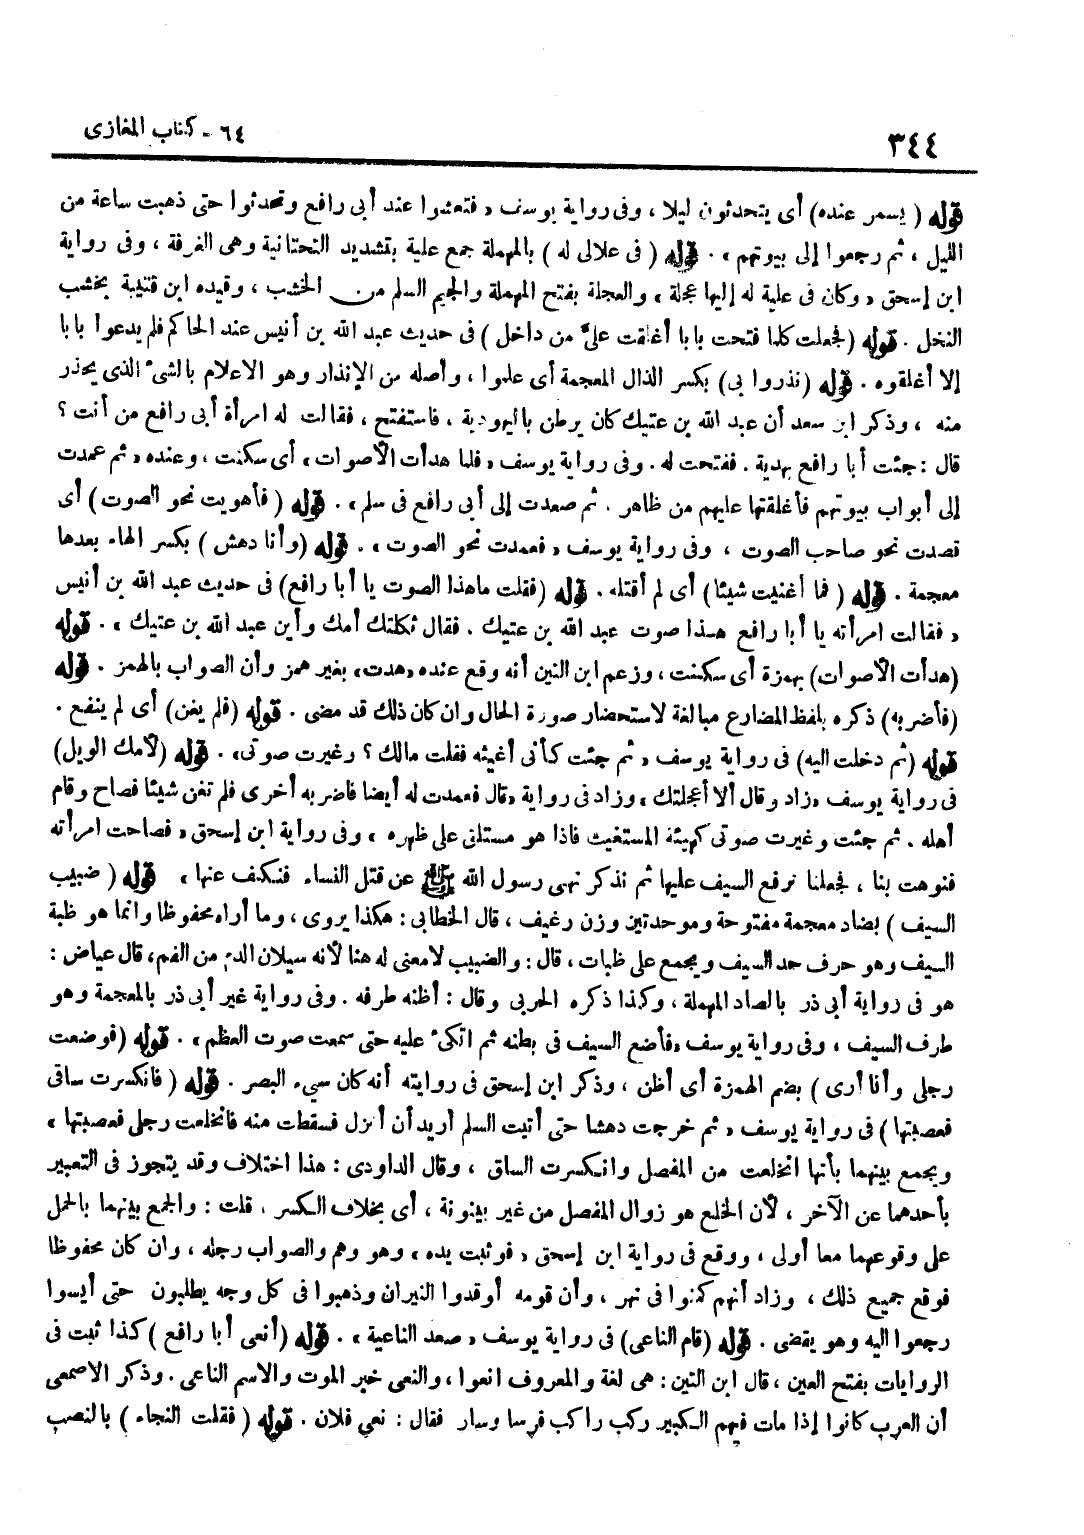 ٣٤٤
٦٤ - كتاب المغازى
قوله ( يسمر عنده) أى يتحدثون ليلا ، وفى رواية يوسف « فتعشوا عند أبى رافع وتحدثوا حتى ذهبت ساعة من
الليل ، ثم رجعوا إلى بيوتهم » . قوله ( فى علالى له ) بالمهملة جمع علية بتشديد التحتانية وهى الغرفة ، وفى رواية
ابن إسحق « وكان فى علية له إليها عجلة » والعجلة بفتح المهملة والجيم السلم من الخشب ، وقيده ابن قتيبة بخشب
النخل . قوله (فجعلت كلما فتحت بابا أغلقت علىّ من داخل ) فى حديث عبد الله بن أنيس عند الحاكم فلم يدعوا بابا
إلا أغلقوه . قوله (نذروا بى) بكسر الذال المعجمة أى علموا ، وأصله من الإنذار وهو الاعلام بالشىء الذى يحذر
منه ، وذكر ابن سعد أن عبد الله بن عتيك كان يرطن باليهودية ، فاستفتح ، فقالت له امرأة أبى رافع من أنت ؟
قال : جئت أبا رافع بهدية . ففتحت له . وفى رواية يوسف « فلما هدأت الأصوات » أى سكنت ، وعنده « ثم عمدت
إلى أبواب بيوتهم فأغلقتها عليهم من ظاهر . ثم صعدت إلى أبى رافع فى سلم » . قوله ( فأهويت نحو الصوت ) أى
قصدت نحو صاحب الصوت ، وفى رواية يوسف « فعمدت نحو الصوت » . قوله (وأنا دهش ) بكسر الهاء بعدها
معجمة . قوله ( فما أغنيت شيئا) أى لم أقتله . قوله (فقلت ماهذا الصوت يا أبا رافع) فى حديث عبد الله بن أنيس
« فقالت امرأته يا أبا رافع هذا صوت عبد الله بن عتيك . فقال ثكلتك أمك وأين عبد الله بن عتيك » . قوله
(هدأت الأصوات) بهمزة أى سكنت ، وزعم ابن التين أنه وقع عنده «هدت» بغير همز وأن الصواب بالهمز . قوله
(فأضربه) ذكره بلفظ المضارع مبالغة لاستحضار صورة الحال وان كان ذلك قد مضى . قوله (فلم يغن) أى لم ينفع .
قوله (ثم دخلت اليه) فى رواية يوسف « ثم جئت كأنى أغيثه فقلت مالك ؟ وغيرت صوتى» . قوله (لأمك الويل)
فى رواية يوسف «زاد وقال ألا أعجلتك » وزاد فى رواية «قال فعمدت له أيضا فاضربه أخرى فلم تغن شيئا فصاح وقام
أهله . ثم جئت وغيرت صوتى كهيئة المستغيث فاذا هو مستلق على ظهره » وفى رواية ابن إسحق « فصاحت امرأته
فنوهت بنا ، فجعلنا نرفع السيف عليها ثم نذكر نهى رسول الله ﷺ عن قتل النساء فنكف عنها » قوله ( ضبيب
السيف ) بضاد معجمة مفتوحة وموحدتين وزن رغيف ، قال الخطابى : هكذا يروى ، وما أراه محفوظا وانما هو ظبة
السيف وهو حرف حد السيف ويجمع على ظبات ، قال : والضبيب لامعنى له هنا لأنه سيلان الدم من الفم، قال عياض :
هو فى رواية أبى ذر بالصاد المهملة ، وكذا ذكره الحربى وقال : أظنه طرفه . وفى رواية غير أبى ذر بالمعجمة وهو
طرف السيف ، وفى رواية يوسف «فأضع السيف فى بطنه ثم اتكىء عليه حتى سمعت صوت العظم » . قوله (فوضعت
رجلى وأنا أرى ) بضم الهمزة أى أظن ، وذكر ابن إسحق فى روايته أنه كان سيء البصر . قوله ( فانكسرت ساقى
فعصبتها ) فى رواية يوسف « ثم خرجت دهشا حتى أتيت السلم أريد أن أنزل فسقطت منه فانخلعت رجلى فعصبتها »
ويجمع بينهما بأنها انخلعت من المفصل وانكسرت الساق ، وقال الداودى : هذا اختلاف وقد يتجوز فى التعبير
بأحدهما عن الآخر ، لأن الخلع هو زوال المفصل من غير بينونة ، أى بخلاف الكسر . قلت : والجمع بينهما بالحمل
على وقوعهما معا أولى ، ووقع فى رواية ابن إسحق « فوثبت يده » وهو وهم والصواب رجله ، وان كان محفوظا
فوقع جميع ذلك ، وزاد أنهم كمنوا فى نهر ، وأن قومه أوقدوا النيران وذهبوا فى كل وجه يطلبون حتى أيسوا
رجعوا اليه وهو يقضى . قوله (قام الناعى) فى رواية يوسف « صعد الناعية » . قوله (أنعى أبا رافع ) كذا ثبت فى
الروايات بفتح العين ، قال ابن التين : هى لغة والمعروف انعوا ، والنعى خبر الموت والاسم الناعى . وذكر الاصمعى
أن العرب كانوا إذا مات فيهم الكبير ركب راكب فرسا وسار فقال : نعي فلان . قوله ( فقلت النجاء ) بالنصب